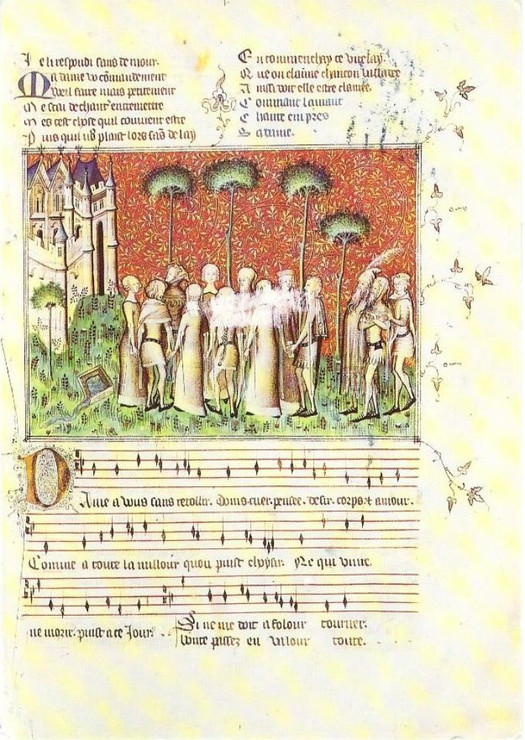 J e li respondi sans demour.
Ma dame vo cōmandement
Vueil faire mais petitement
M e scai de chanter entremettre
M es cest chose quil couvient estre
P uis qui vꝯ plaist lors sās delay
E n commenchay ce virelay.
Q ue on claime chancon
A insi doit elle estre clamee.
C omment lamant
C hante empres
S a dame.
Dame a vous sans retollir. Doins cuer. pensee. desir. corps et amour.
Comme a toute la millour quon puist choysir. Ne qui vivre.
ne morir. puist a ce jour.
Si ne me doit a folour tourner.
passez en valour toute.